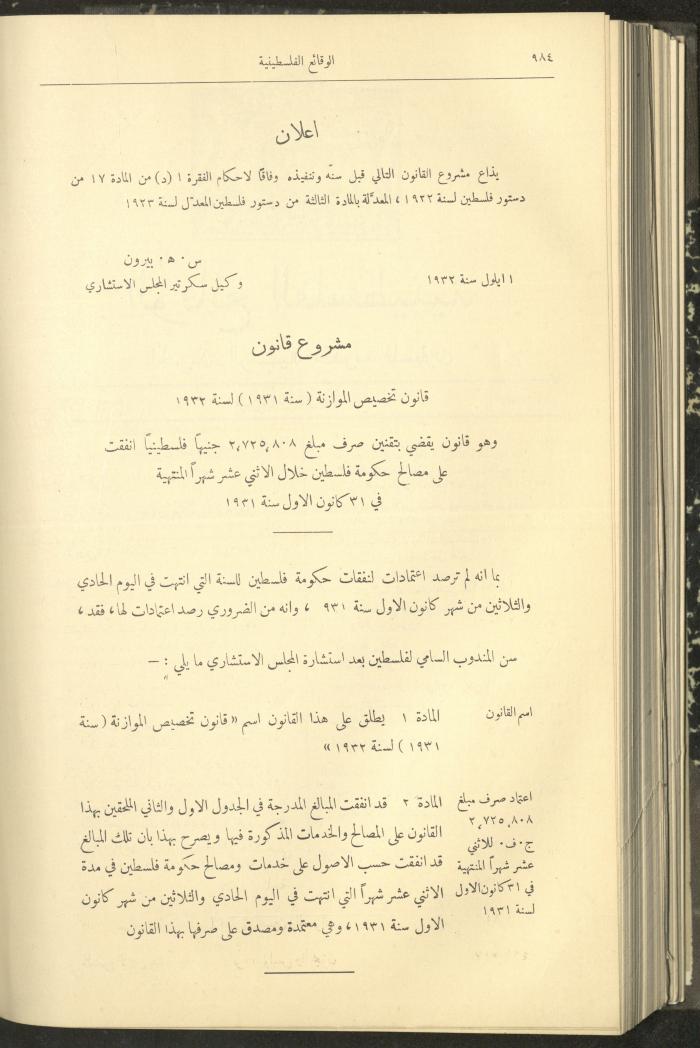 ٩٨٤
الوقائع الفلسطينية
اعلان
يذاع مشروع القانون التالي قبل سنّه وتنفيذه وفاقًا لاحكام الفقرة ١ (د) من المادة ١٧ من
دستور فلسطين لسنة ١٩٢٢ ، المعدَّلة بالمادة الثالثة من دستور فلسطين المعدّل لسنة ١٩٢٣
س٠ ه٠ بيرون
١ ايلول سنة ١٩٣٢
وكيل سكرتير المجلس الاستشاري
مشروع قانون
قانون تخصيص الموازنة ( سنة ١٩٣١ ) لسنة ١٩٣٢
وهو قانون يقضي بتقنين صرف مبلغ ٢٬٧٢٥٬٨٠٨ جنيهًا فلسطينيًا انفقت
على مصالح حكومة فلسطين خلال الاثني عشر شهراً المنتهية
في ٣١ كانون الاول سنة ١٩٣١
بما انه لم ترصد اعتمادات لنفقات حكومة فلسطين للسنة التي انتهت في اليوم الحادي
والثلاثين من شهر كانون الاول سنة ٩٣١ ، وانه من الضروري رصد اعتمادات لها ، فقد ،
سن المندوب السامي لفلسطين بعد استشارة المجلس الاستشاري ما يلي : —
اسم القانون
المادة ١ يطلق على هذا القانون اسم « قانون تخصيص الموازنة ( سنة
١٩٣١ ) لسنة ١٩٣٢ »
اعتماد صرف مبلغ
٢٬٧٢٥٬٨٠٨
ج٠ ف٠ للاثني
عشر شهراً المنتهية
في ٣١ كانون الاول
لسنة ١٩٣١
المادة ٢ قد انفقت المبالغ المدرجة في الجدول الاول والثاني الملحقين بهذا
القانون على المصالح والخدمات المذكورة فيها ويصرح بهذا بان تلك المبالغ
قد انفقت حسب الاصول على خدمات ومصالح حكومة فلسطين في مدة
الاثني عشر شهراً التي انتهت في اليوم الحادي والثلاثين من شهر كانون
الاول سنة ١٩٣١ ، وهي معتمدة ومصدق على صرفها بهذا القانون